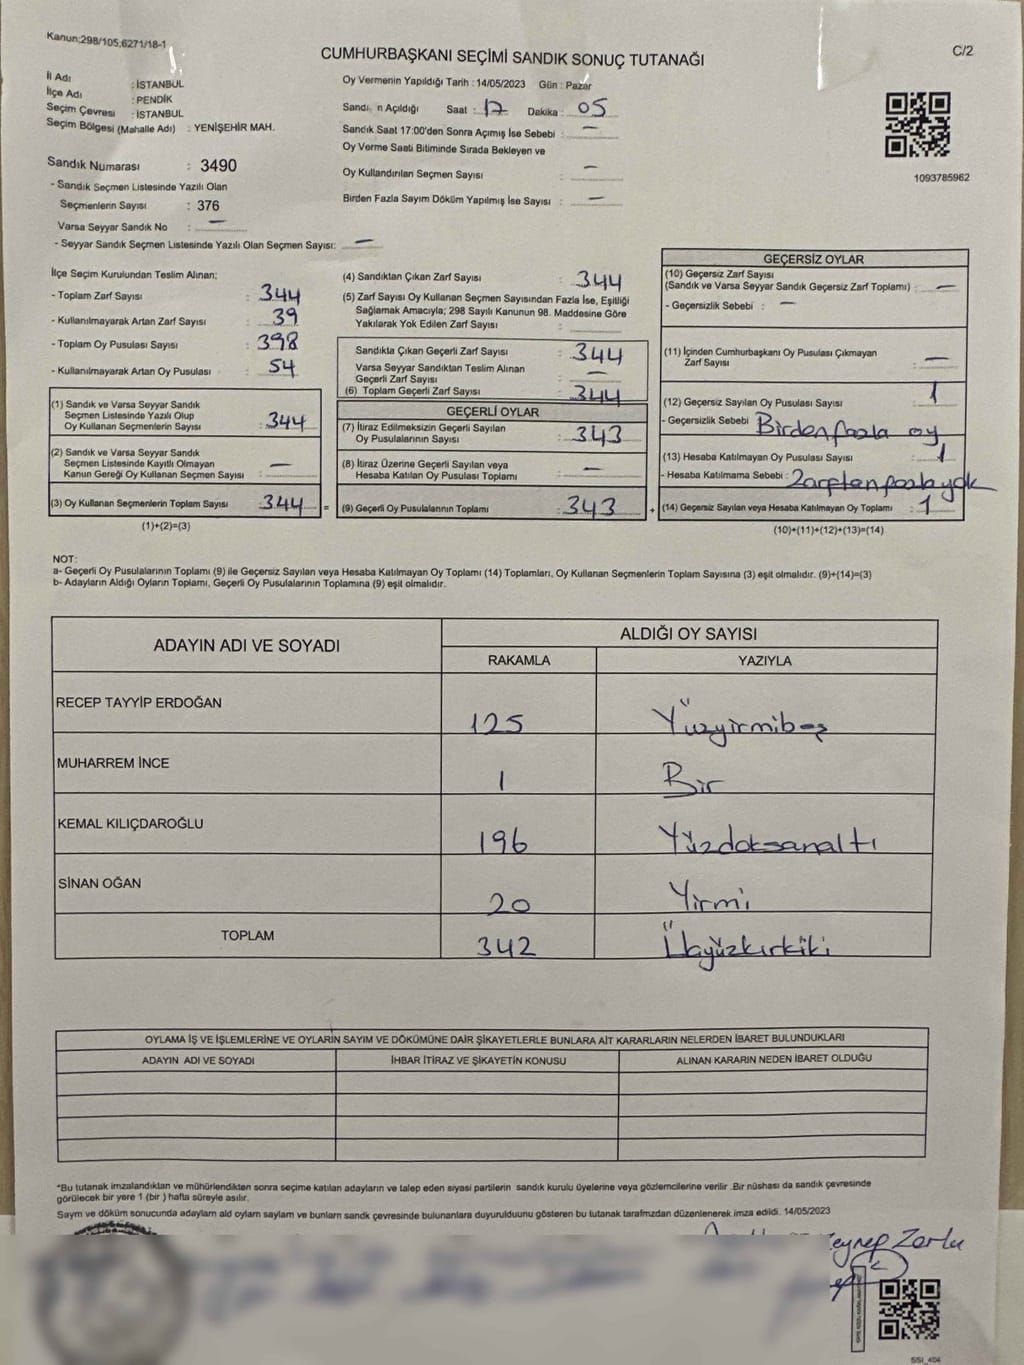 Kanun:298/105;6271/18-1
CUMHURBAŞKANI SEÇİMİ SANDIK SONUÇ TUTANAĞI
C/2
İl Adı : İSTANBUL
İlçe Adı : PENDİK
Seçim Çevresi : İSTANBUL
Seçim Bölgesi (Mahalle Adı) : YENİŞEHİR MAH.
Sandık Numarası : 3490
- Sandık Seçmen Listesinde Yazılı Olan
Seçmenlerin Sayısı : 376
Varsa Seyyar Sandık No : —
- Seyyar Sandık Seçmen Listesinde Yazılı Olan Seçmen Sayısı: —
Oy Vermenin Yapıldığı Tarih : 14/05/2023 Gün : Pazar
Sandı n Açıldığı Saat : 17 Dakika : 05
Sandık Saat 17:00'den Sonra Açımış İse Sebebi : —
Oy Verme Saati Bitiminde Sırada Bekleyen ve
Oy Kullandırılan Seçmen Sayısı : —
Birden Fazla Sayım Döküm Yapılmış İse Sayısı : —
1093785962
İlçe Seçim Kurulundan Teslim Alınan;
- Toplam Zarf Sayısı : 344
- Kullanılmayarak Artan Zarf Sayısı : 39
- Toplam Oy Pusulası Sayısı : 398
- Kullanılmayarak Artan Oy Pusulası : 54
(1) Sandık ve Varsa Seyyar Sandık
Seçmen Listesinde Yazılı Olup
Oy Kullanan Seçmenlerin Sayısı : 344
(2) Sandık ve Varsa Seyyar Sandık
Seçmen Listesinde Kayıtlı Olmayan
Kanun Gereği Oy Kullanan Seçmen Sayısı : —
(3) Oy Kullanan Seçmenlerin Toplam Sayısı : 344 =
(1)+(2)=(3)
(4) Sandıktan Çıkan Zarf Sayısı : 344
(5) Zarf Sayısı Oy Kullanan Seçmen Sayısından Fazla İse, Eşitliği
Sağlamak Amacıyla; 298 Sayılı Kanunun 98. Maddesine Göre
Yakılarak Yok Edilen Zarf Sayısı :
Sandıkta Çıkan Geçerli Zarf Sayısı : 344
Varsa Seyyar Sandıktan Teslim Alınan
Geçerli Zarf Sayısı : —
(6) Toplam Geçerli Zarf Sayısı : 344
GEÇERLİ OYLAR
(7) İtiraz Edilmeksizin Geçerli Sayılan
Oy Pusulalarının Sayısı : 343
(8) İtiraz Üzerine Geçerli Sayılan veya
Hesaba Katılan Oy Pusulası Toplamı : —
(9) Geçerli Oy Pusulalarının Toplamı : 343 +
GEÇERSİZ OYLAR
(10) Geçersiz Zarf Sayısı
(Sandık ve Varsa Seyyar Sandık Geçersiz Zarf Toplamı) : —
- Geçersizlik Sebebi : —
(11) İçinden Cumhurbaşkanı Oy Pusulası Çıkmayan
Zarf Sayısı : —
(12) Geçersiz Sayılan Oy Pusulası Sayısı : 1
- Geçersizlik Sebebi : Birden fazla oy
(13) Hesaba Katılmayan Oy Pusulası Sayısı : 1
- Hesaba Katılmama Sebebi : Zarftan fazla
(14) Geçersiz Sayılan veya Hesaba Katılmayan Oy Toplamı : 1
(10)+(11)+(12)+(13)=(14)
NOT:
a- Geçerli Oy Pusulalarının Toplamı (9) ile Geçersiz Sayılan veya Hesaba Katılmayan Oy Toplamı (14) Toplamları, Oy Kullanan Seçmenlerin Toplam Sayısına (3) eşit olmalıdır. (9)+(14)=(3)
b- Adayların Aldığı Oyların Toplamı, Geçerli Oy Pusulalarının Toplamına (9) eşit olmalıdır.
ADAYIN ADI VE SOYADI
ALDIĞI OY SAYISI
RAKAMLA YAZIYLA
RECEP TAYYİP ERDOĞAN 125 Yüzyirmibeş
MUHARREM İNCE 1 Bir
KEMAL KILIÇDAROĞLU 196 Yüzdoksanaltı
SİNAN OĞAN 20 Yirmi
TOPLAM 342 Üçyüzkırkiki
OYLAMA İŞ VE İŞLEMLERİNE VE OYLARIN SAYIM VE DÖKÜMÜNE DAİR ŞİKAYETLERLE BUNLARA AİT KARARLARIN NELERDEN İBARET BULUNDUKLARI
ADAYIN ADI VE SOYADI İHBAR İTİRAZ VE ŞİKAYETİN KONUSU ALINAN KARARIN NEDEN İBARET OLDUĞU
*Bu tutanak imzalandıktan ve mühürlendikten sonra seçime katılan adayların ve talep eden siyasi partilerin sandık kurulu üyelerine veya gözlemcilerine verilir .Bir nüshası da sandık çevresinde
görülecek bir yere 1 (bir ) hafta süreyle asılır.
Sayım ve döküm sonucunda adaylam ald oylam saylam ve bunlam sandk çevresinde bulunanlara duyurulduunu gösteren bu tutanak tarafmzdan düzenlenerek imza edildi. 14/05/2023
eynep Zorlu
SSİ_404